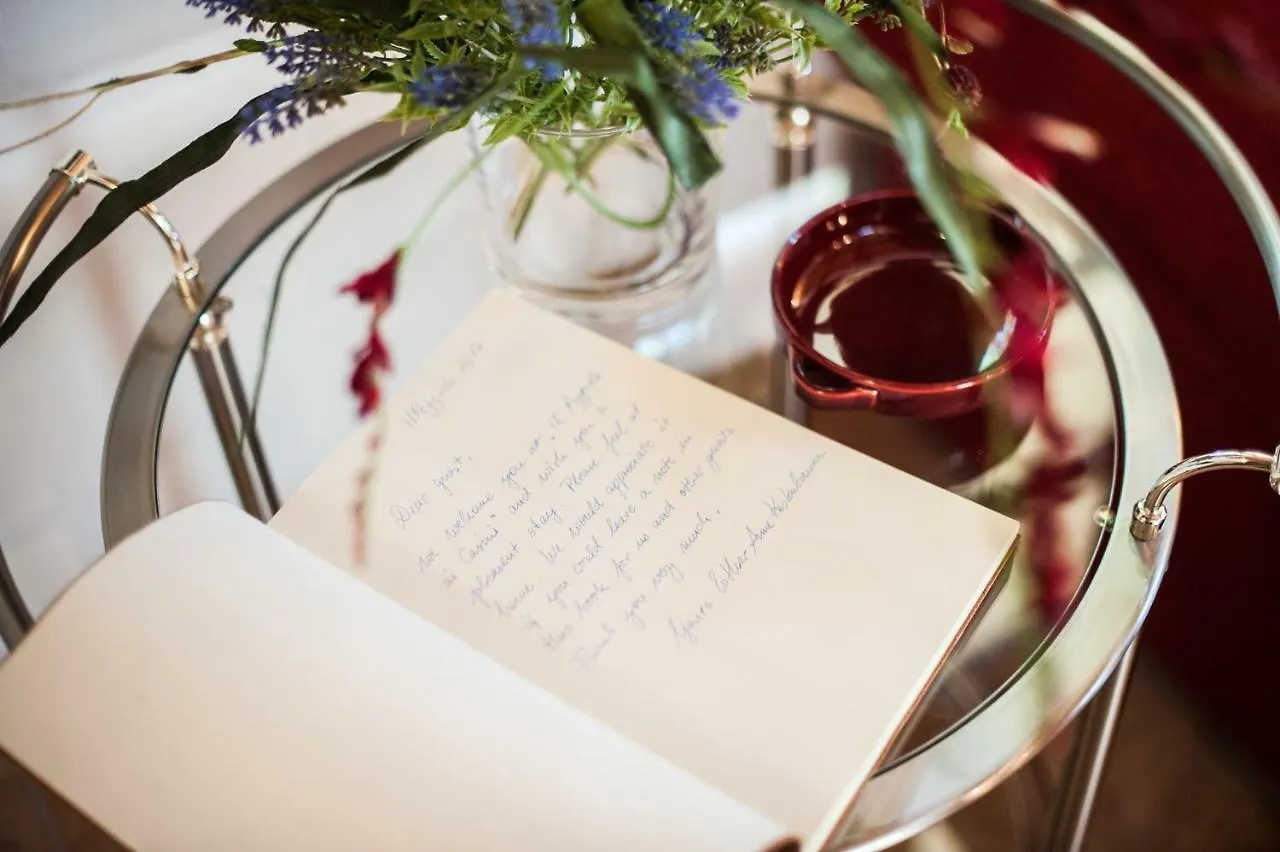 Dear guest,
we welcome you at "Il Poggio
ai Casini" and wish you a
pleasant stay. Please feel at
home. We would appreciate it
if you could leave a note in
this book for us and other guests
Thank you very much,
Yours Esther Anne